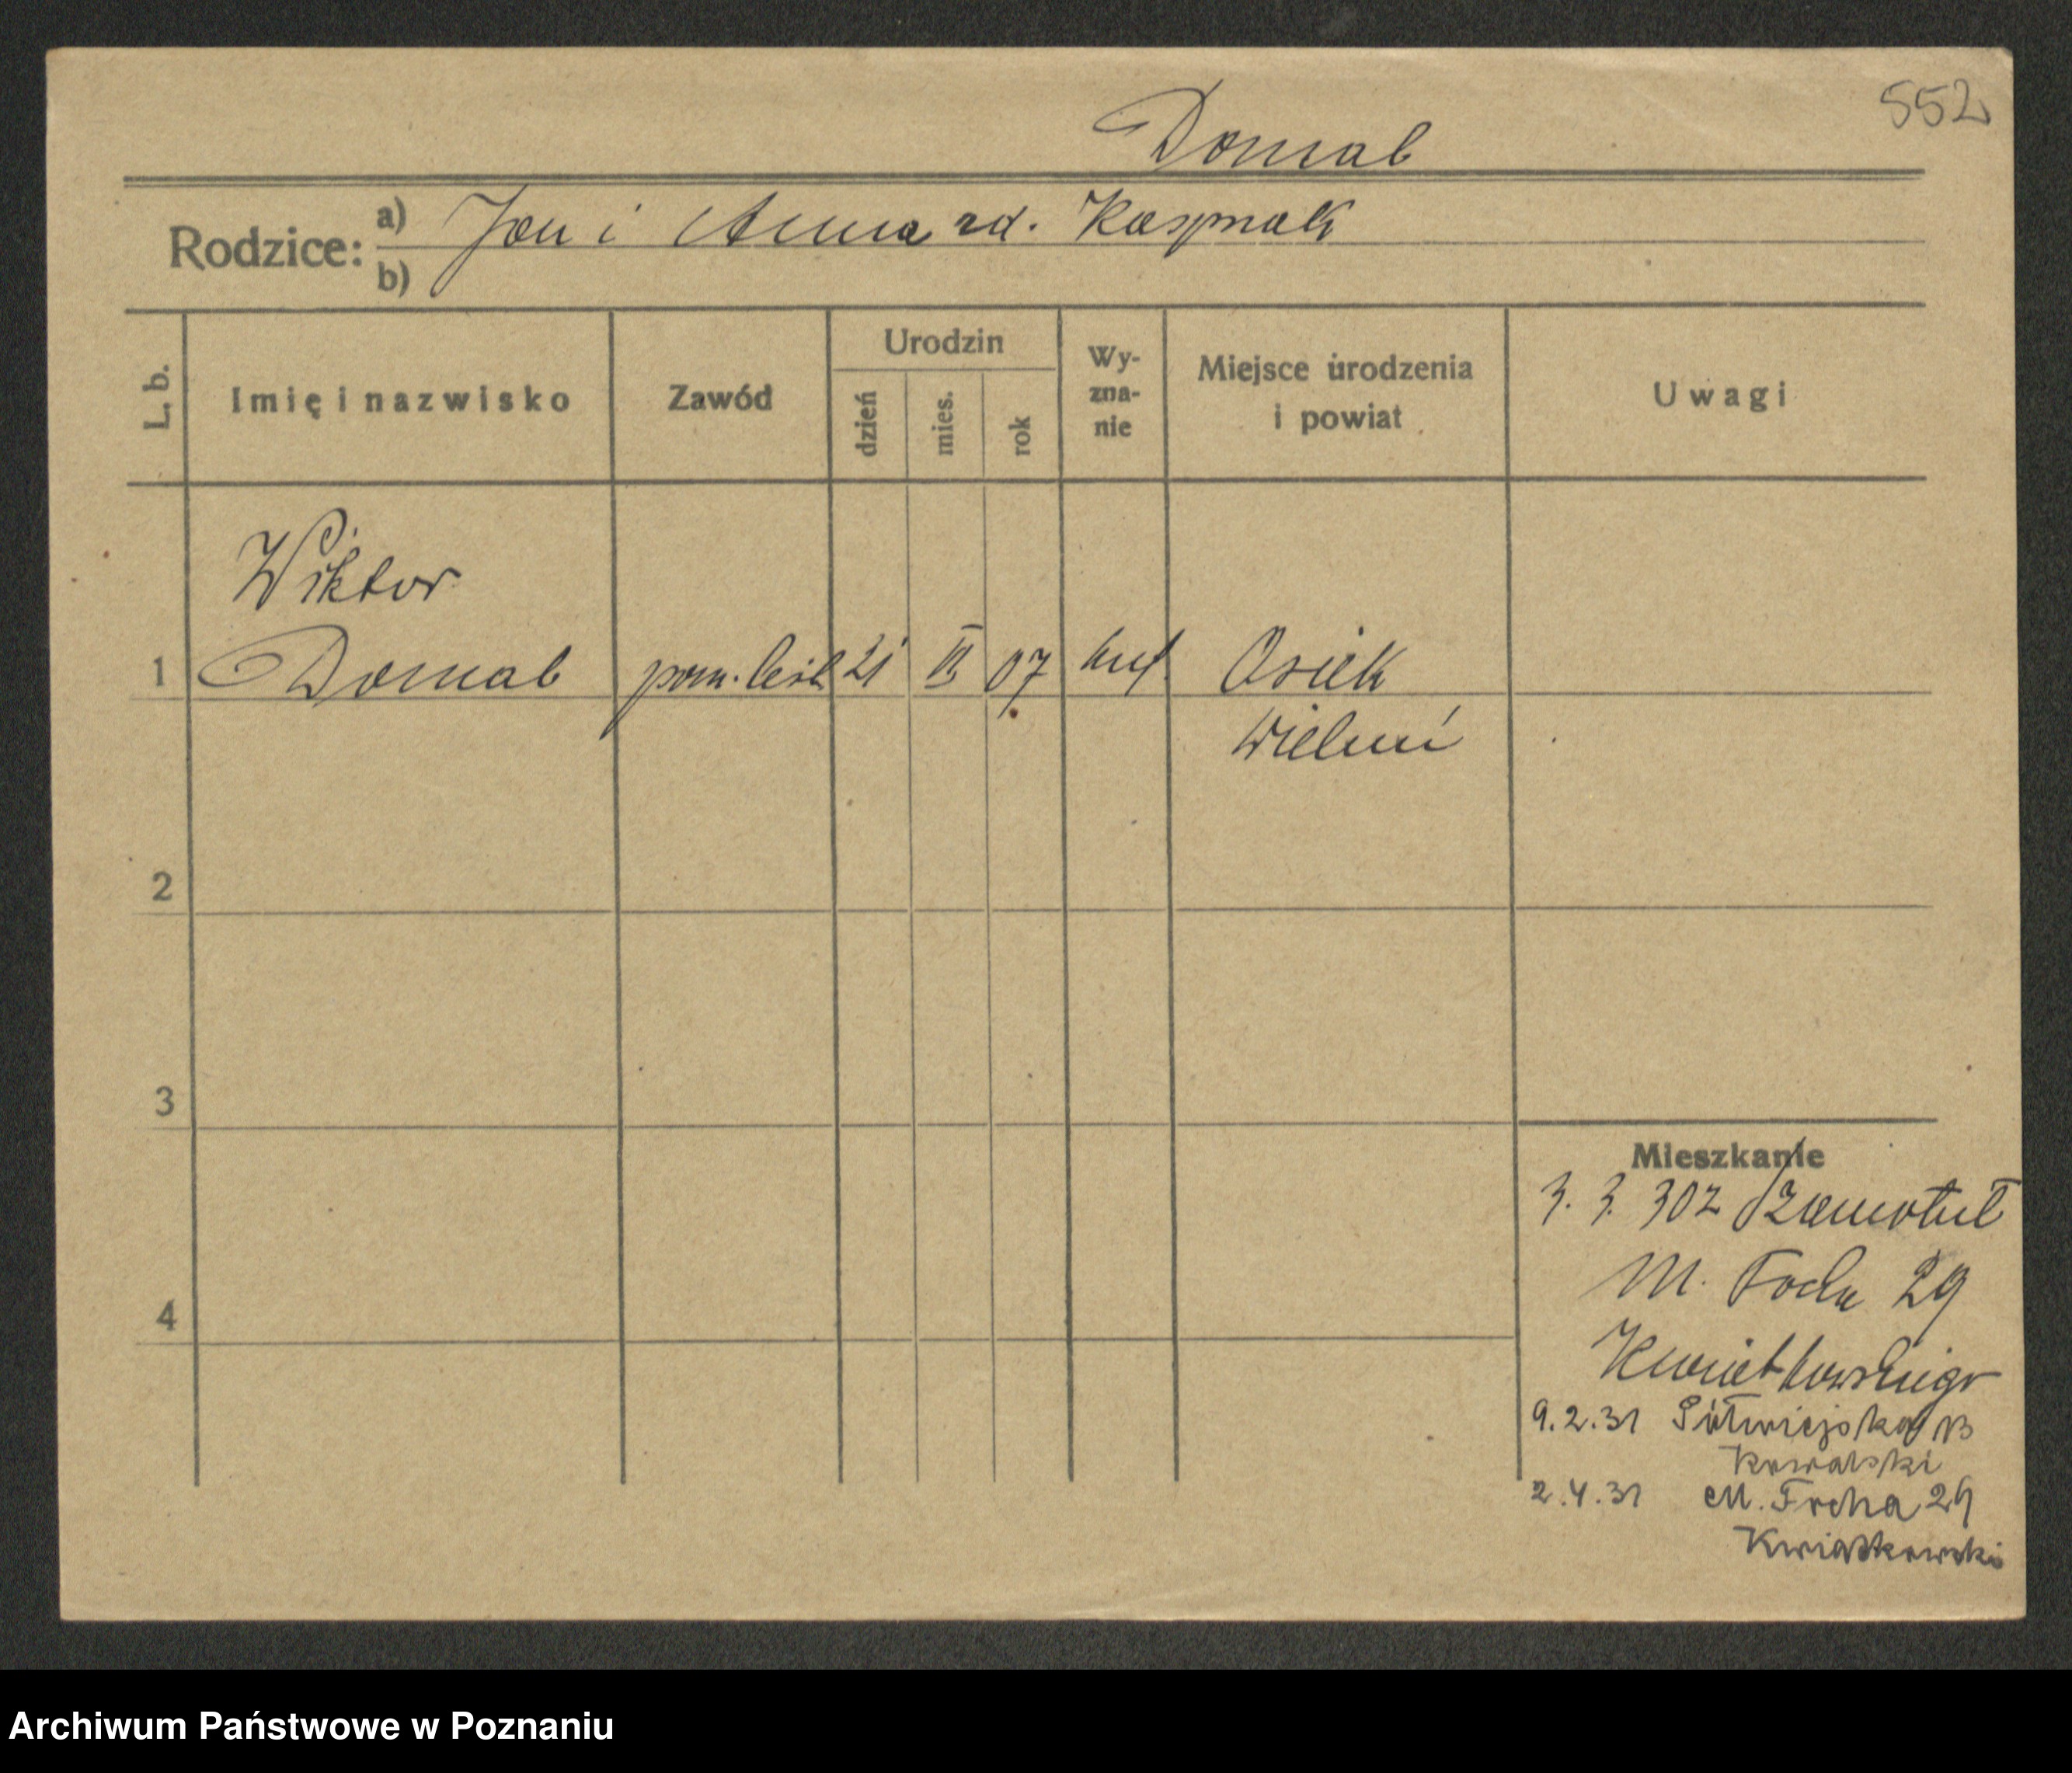 552
Domab
Rodzice: a) Jan i Anna zd. Kaspnak
b)
L. b.
Imię i nazwisko
Zawód
Urodzin
dzień
mies.
rok
Wy-
zna-
nie
Miejsce urodzenia
i powiat
Uwagi
Wiktor
1 Domab pom. leśn. 21 VI 07 kat. Osiek
Wieluń
2
3
Mieszkanie
3. 3. 30 z Szamotuł
M. Focha 29
4
Kwiatkowskiego
9.2.31 Półwiejska 13
Kowalski
2.4.31 M. Focha 29
Kwiatkowski
Archiwum Państwowe w Poznaniu